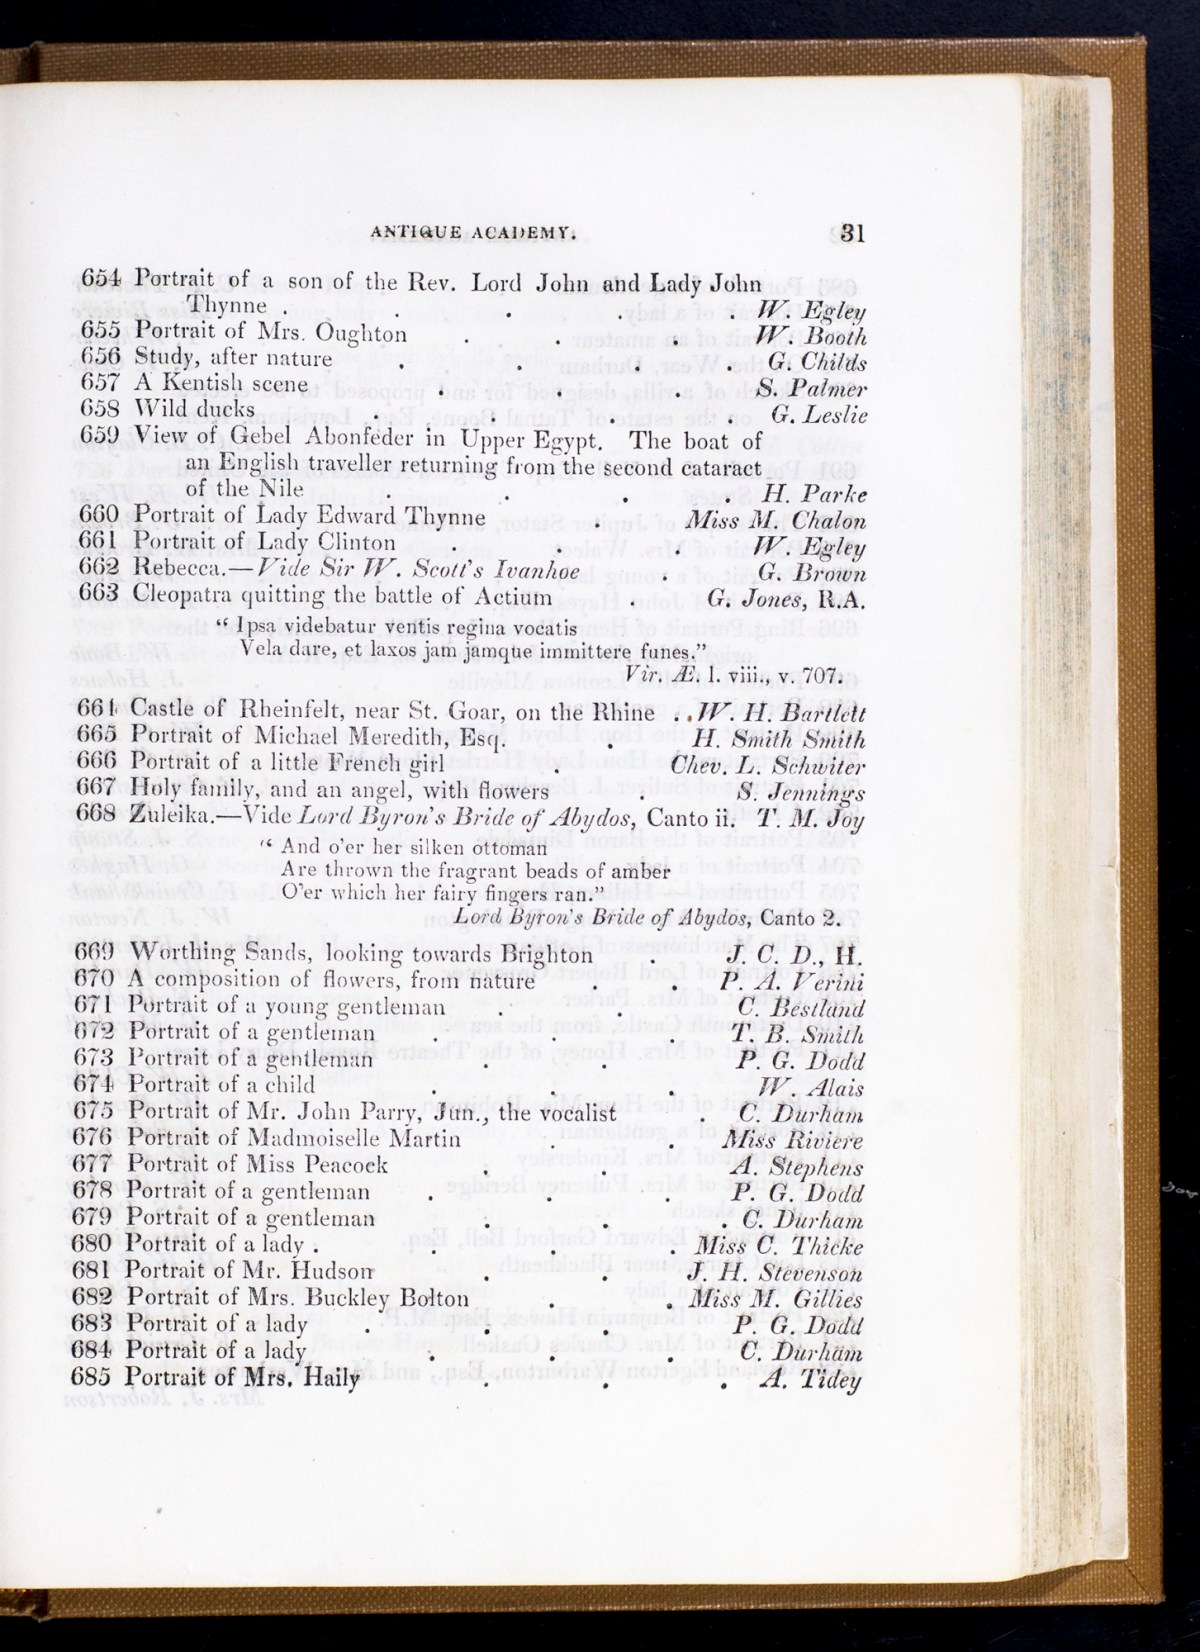 ANTIQUE ACADEMY. 31
654 Portrait of a son of the Rev. Lord John and Lady John
Thynne . . . . . W. Egley
655 Portrait of Mrs. Oughton . . . W. Booth
656 Study, after nature . . . . G. Childs
657 A Kentish scene . . . S. Palmer
658 Wild ducks . . . . G. Leslie
659 View of Gebel Abonfeder in Upper Egypt. The boat of
an English traveller returning from the second cataract
of the Nile . . . . H. Parke
660 Portrait of Lady Edward Thynne . Miss M. Chalon
661 Portrait of Lady Clinton . . . W. Egley
662 Rebecca.—Vide Sir W. Scott's Ivanhoe . G. Brown
663 Cleopatra quitting the battle of Actium . G. Jones, R.A.
“ Ipsa videbatur ventis regina vocatis
Vela dare, et laxos jam jamque immittere funes.”
Vir. Æ. l. viii., v. 707.
664 Castle of Rheinfelt, near St. Goar, on the Rhine . . W. H. Bartlett
665 Portrait of Michael Meredith, Esq. . H. Smith Smith
666 Portrait of a little French girl . Chev. L. Schwiter
667 Holy family, and an angel, with flowers . S. Jennings
668 Zuleika.—Vide Lord Byron's Bride of Abydos, Canto ii. T. M. Joy
“ And o’er her silken ottoman
Are thrown the fragrant beads of amber
O’er which her fairy fingers ran.”
Lord Byron's Bride of Abydos, Canto 2.
669 Worthing Sands, looking towards Brighton . J. C. D., H.
670 A composition of flowers, from nature . . P. A. Verini
671 Portrait of a young gentleman . . C. Bestland
672 Portrait of a gentleman . . . T. B. Smith
673 Portrait of a gentleman . . P. G. Dodd
674 Portrait of a child . . . W. Alais
675 Portrait of Mr. John Parry, Jun., the vocalist . C. Durham
676 Portrait of Madmoiselle Martin . Miss Riviere
677 Portrait of Miss Peacock . . A. Stephens
678 Portrait of a gentleman . . . P. G. Dodd
679 Portrait of a gentleman . . . C. Durham
680 Portrait of a lady . . . . Miss C. Thicke
681 Portrait of Mr. Hudson . . J. H. Stevenson
682 Portrait of Mrs. Buckley Bolton . . Miss M. Gillies
683 Portrait of a lady . . . P. G. Dodd
684 Portrait of a lady . . . C. Durham
685 Portrait of Mrs. Haily . . . A. Tidey